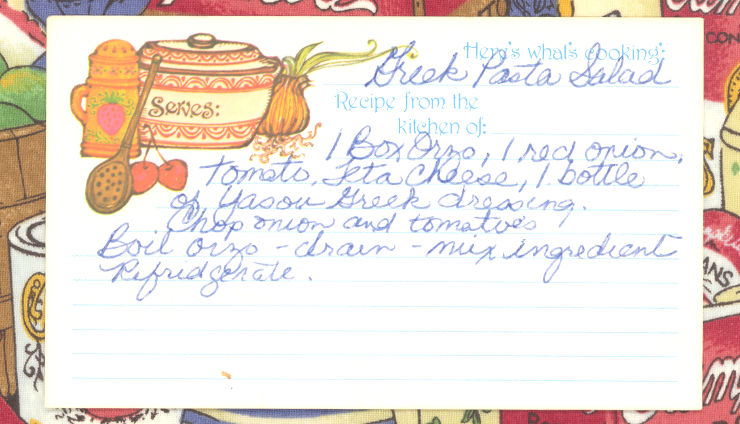 Here's what's cooking:
Greek Pasta Salad
Serves:
Recipe from the
kitchen of:
1 Box Orzo, 1 red onion,
tomato, Feta Cheese, 1 bottle
of Yasou Greek dressing.
Chop onion and tomatoes
Boil orzo - drain - mix ingredient
Refridgerate.
CON
ANS